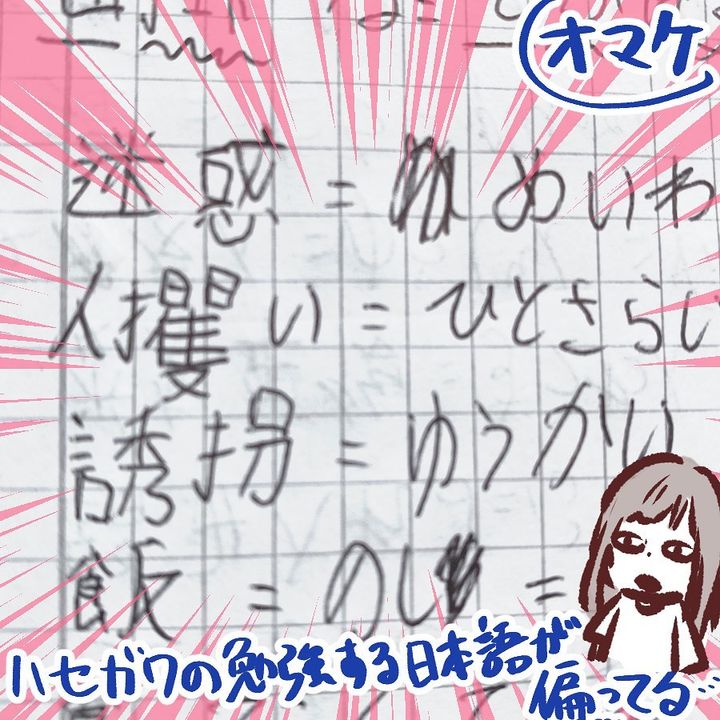 オマケ
迷惑 = めいわ
人攫い = ひとさらい
誘拐 = ゆうかい
飯 = のし =
ハセガワの勉強する日本語が
偏ってる…